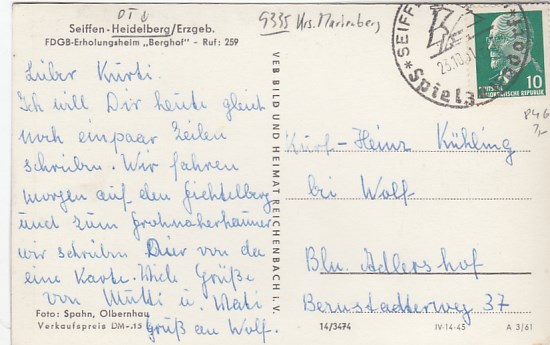 OT
9335 Krs. Marienberg
Seiffen-Heidelberg/Erzgeb.
FDGB-Erholungsheim „Berghof" - Ruf: 259
Lieber Kurti.
Ich will Dir heute gleich
noch ein paar Zeilen
schreiben. Wir fahren
morgen auf den Fichtelberg
und zum
wir schreiben Dir von da
eine Karte. Viele Grüße
von Mutti u. Vati
Gruß an Wolf.
Foto: Spahn, Olbernhau
Verkaufspreis DM -.15
VEB BILD UND HEIMAT REICHENBACH i. V.
SEIFFEN
23.10.61
Spielz
10
DEUTSCHE DEMOKRATISCHE REPUBLIK
P4G
7,-
Kurt-Heinz Kühling
bei Wolf
Bln. Adlershof
Bernstadterweg 37
14/3474
IV-14-45
A 3/61